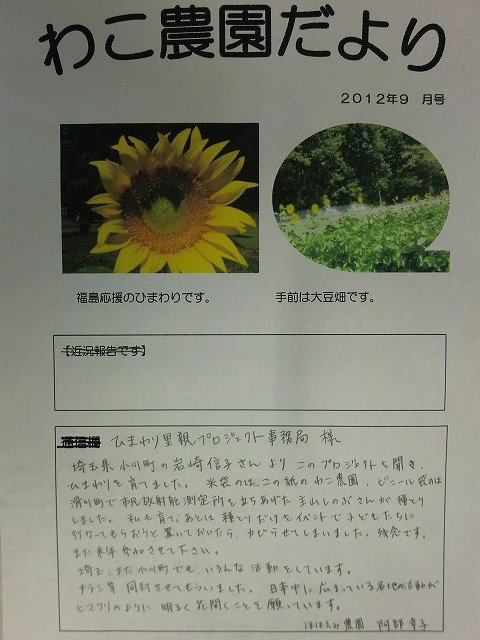 わこ農園だより
2012年9 月号
福島応援のひまわりです。
手前は大豆畑です。
【近況報告です】
通信欄 ひまわり里親プロジェクト事務局 様
埼玉県小川町の岩崎信子さんよりこのプロジェクトを聞き、
ひまわりを育てました。 米袋のは、この紙のわこ農園、ビニール袋のは
滑川町で市民放射能測定所を立ちあげた主山しのぶさんが種とり
しました。 私も育て、あとは種とりだけをイベントで子どもたちに
行なってもらおうと置いておいたら、カビらせてしまいました。残念です。
また来年参加させて下さい。
埼玉、また小川町でも、いろんな活動をしています。
チラシ等 同封させてもらいました。 日本中に広まっている各地の活動が
ヒマワリのように、明るく花開くことを願っています。
ほほえみ農園 阿部 幸子